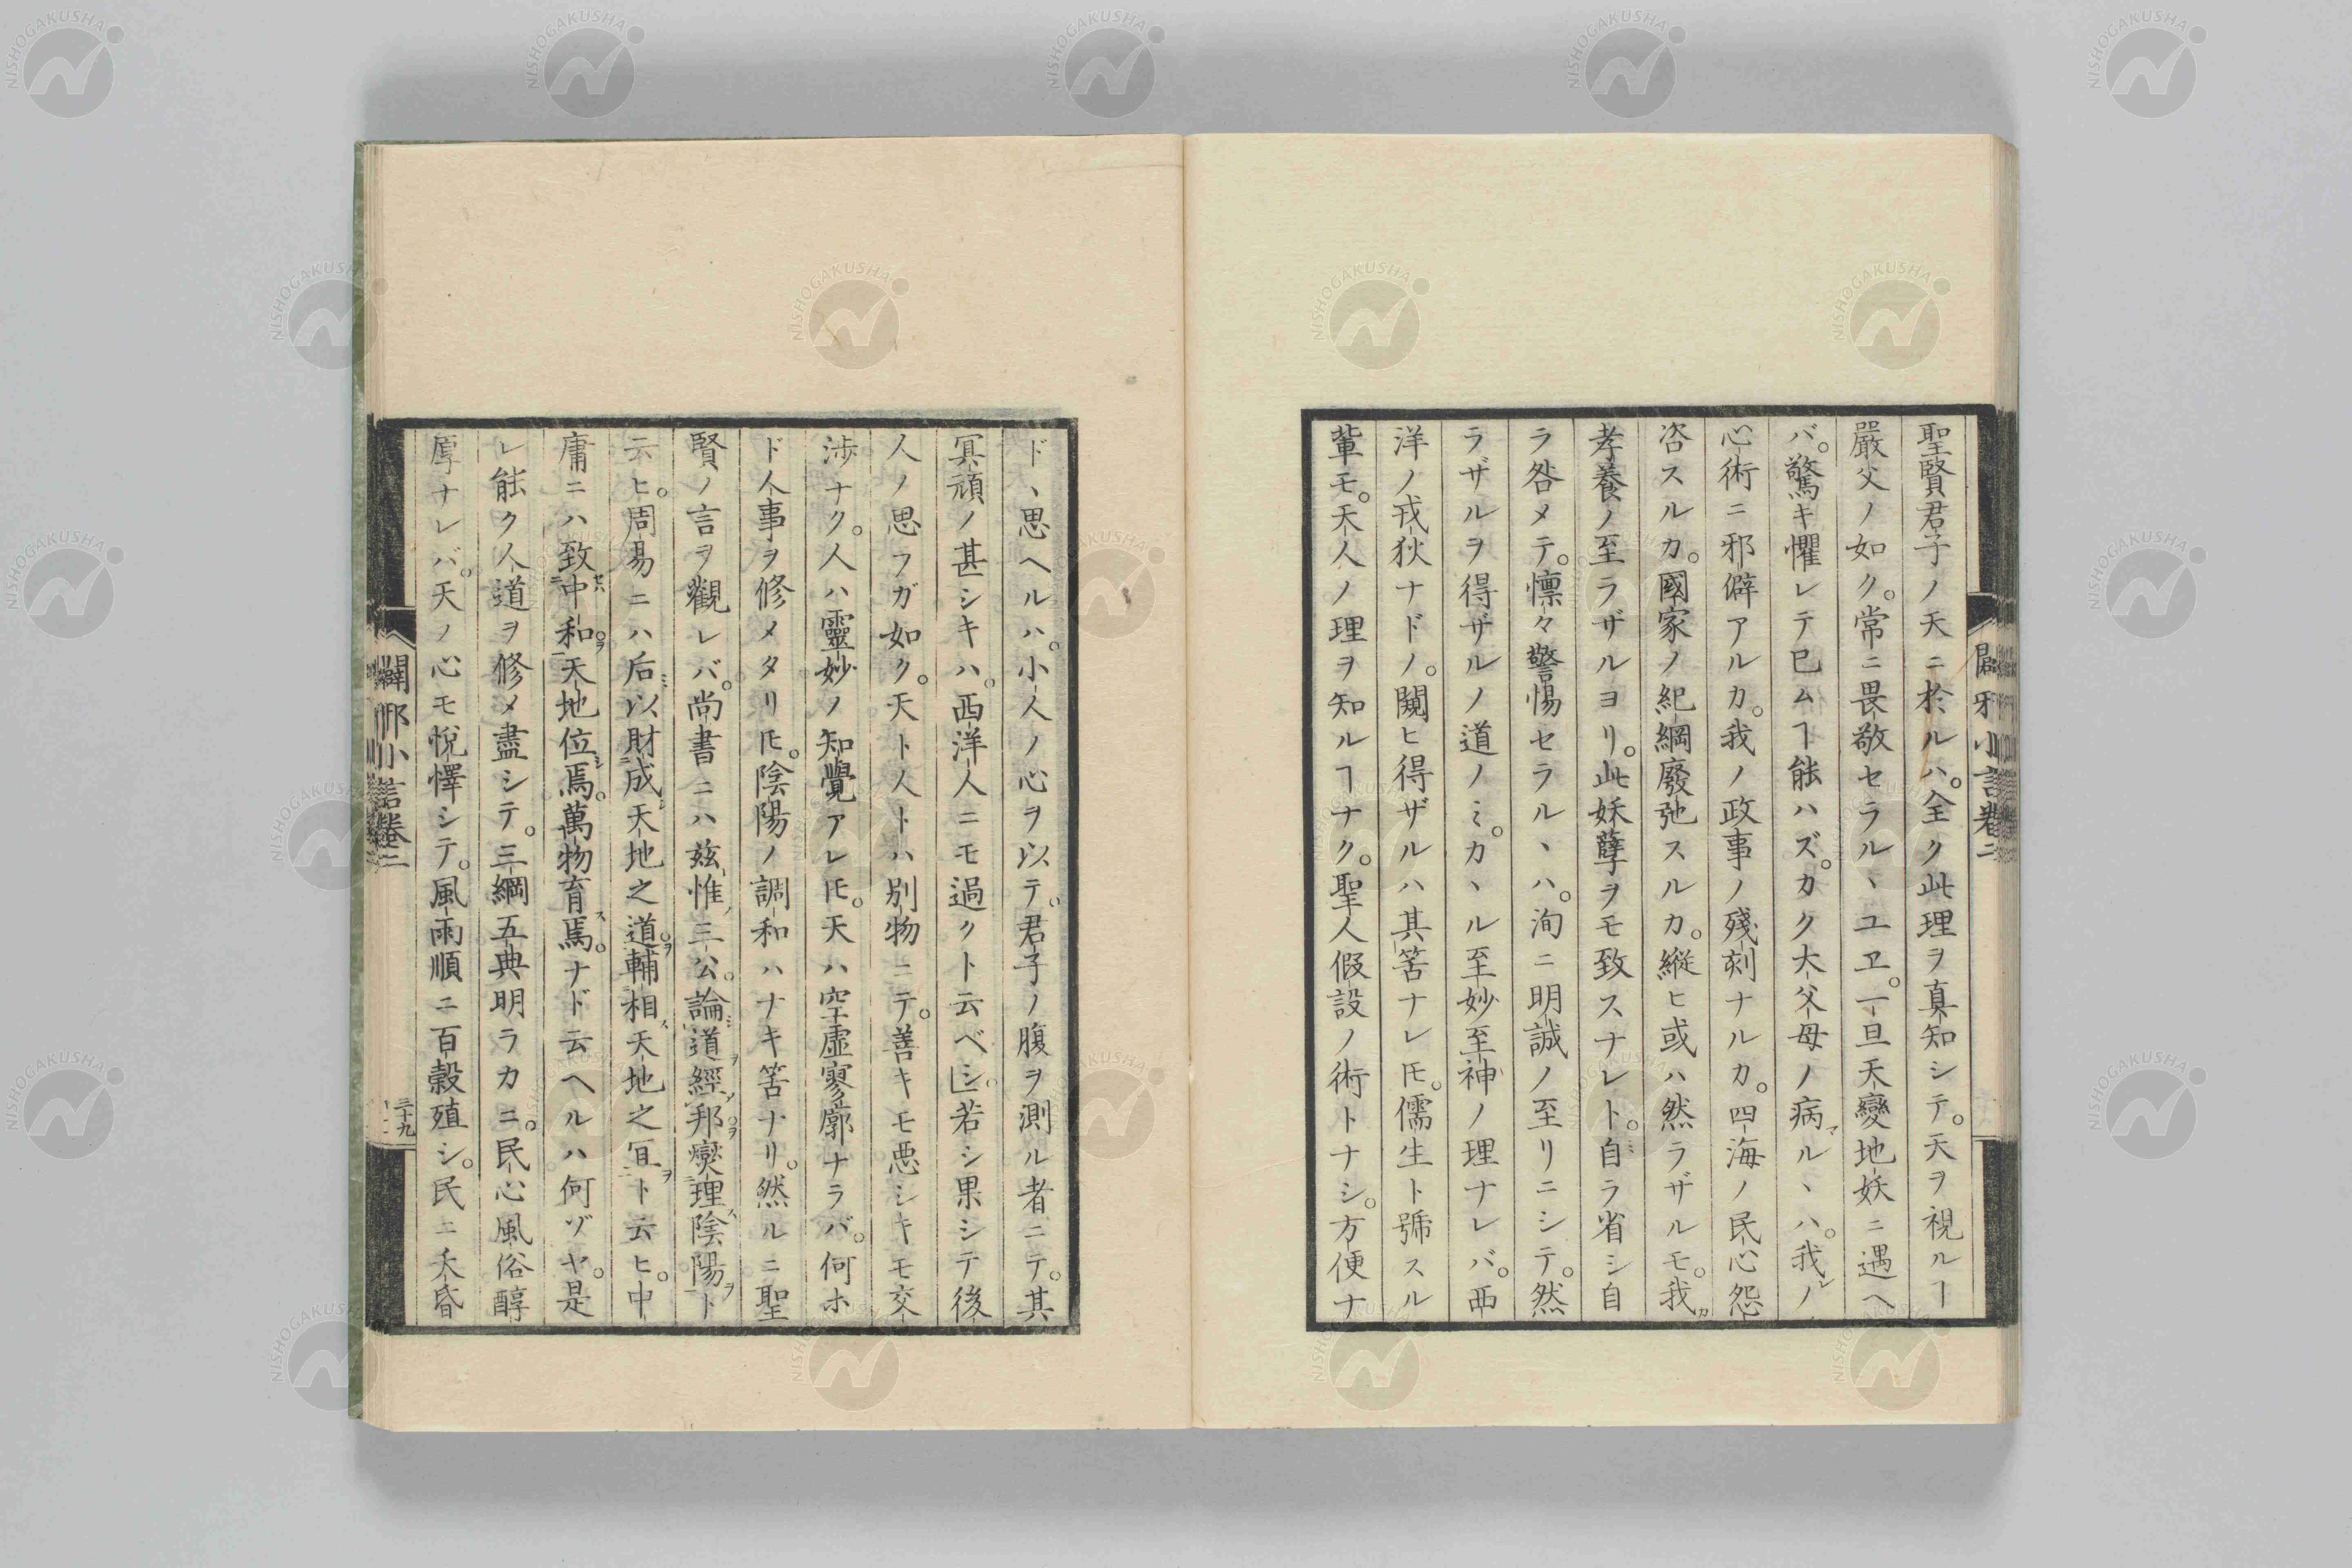 聖賢君子ノ天ニ於ルハ。全ク此理ヲ真知シテ。天ヲ視ルヿ
嚴父ノ如ク。常ニ畏敬セラルヽユヱ。一旦天變地妖ニ遇ヘ
バ。驚キ懼レテ已ムヿ能ハズ。カク大父母ノ病ルヽハ。我ノ
心術ニ邪僻アルカ。我ノ政事ノ殘刻ナルカ。四海ノ民心怨
咨スルカ。國家ノ紀綱廢弛スルカ。縦ヒ或ハ然ラザルモ。我
孝養ノ至ラザルヨリ。此妖孽ヲモ致スナレト。自ラ省シ自
ラ咎メテ。懍々警惕セラルヽハ。洵ニ明誠ノ至リニシテ。然
ラザルヲ得ザルノ道ノミ。カヽル至妙至神ノ理ナレバ。西
洋ノ戎狄ナドノ。闚ヒ得ザルハ其筈ナレ𪜈。儒生ト號スル
輩モ。天人ノ理ヲ知ルヿナク。聖人假設ノ術トナシ。方便ナ
闢邪小言卷二
ドヽ思ヘルハ。小人ノ心ヲ以テ。君子ノ腹ヲ測ル者ニテ。其
冥頑ノ甚シキハ。西洋人ニモ過クト云ベシ。若シ果シテ後
人ノ思フガ如ク。天ト人トハ別物ニテ。善キモ悪シキモ交
渉ナク。人ハ靈妙ノ知覺アレ𪜈。天ハ空虛寥廓ナラバ。何ホ
ド人事ヲ修メタリ𪜈。陰陽ノ調和ハナキ筈ナリ。然ルニ聖
賢ノ言ヲ觀レバ。尚書ニハ玆惟三公。論道經邦燮理陰陽ト
云ヒ。周易ニハ后以財成天地之道。輔相天地之宜ト云ヒ。中
庸ニハ致中和。天地位焉。萬物育焉。ナド云ヘルハ何ゾヤ。是
レ能ク人道ヲ修メ盡シテ。三綱五典明ラカニ。民心風俗醇
厚ナレバ。天ノ心モ悅懌シテ。風雨順ニ百穀殖シ。民ニ夭昏
闢邪小言卷二
三十九